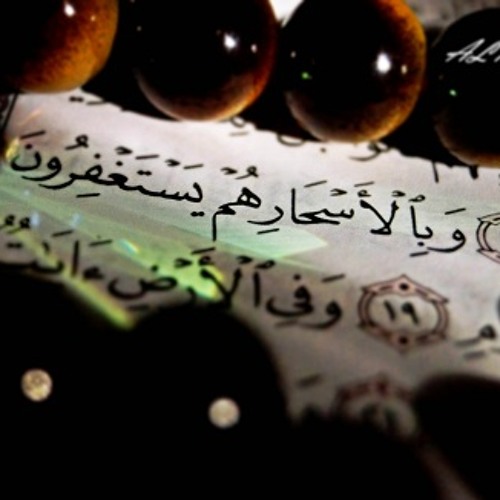 وَبِٱلْأَسْحَارِ هُمْ يَسْتَغْفِرُونَ
١٩ وَفِى ٱلْأَرْضِ ءَايَٰتٌ